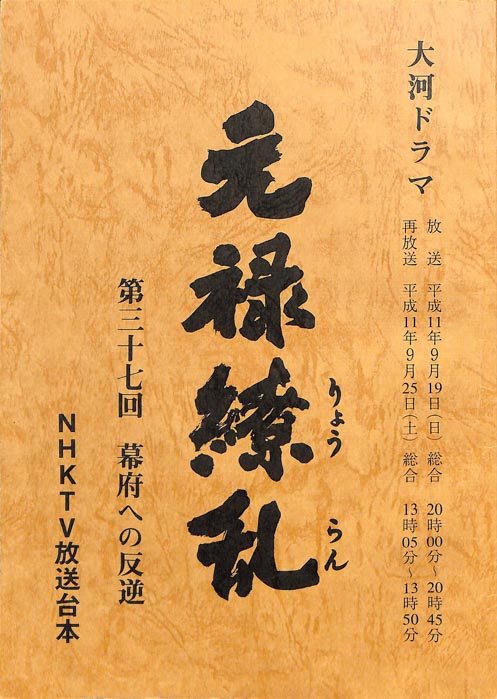 大河ドラマ
放送 平成11年9月19日(日) 総合 20時00分~20時45分
再放送 平成11年9月25日(土) 総合 13時05分~13時50分
元禄繚乱
りょうらん
第三十七回 幕府への反逆
NHKTV放送台本